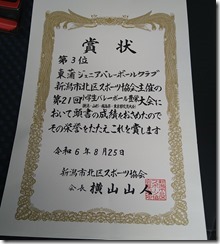 賞状
第3位
東浦ジュニアバレーボールクラブ
新潟市北区スポーツ協会主催の
第21回小学生バレーボール豊栄大会に
おいて頭書の成績をおさめたので
その栄誉をたたえこれを賞します
令和6年8月25日
新潟市北区スポーツ協会
会長 横山山人